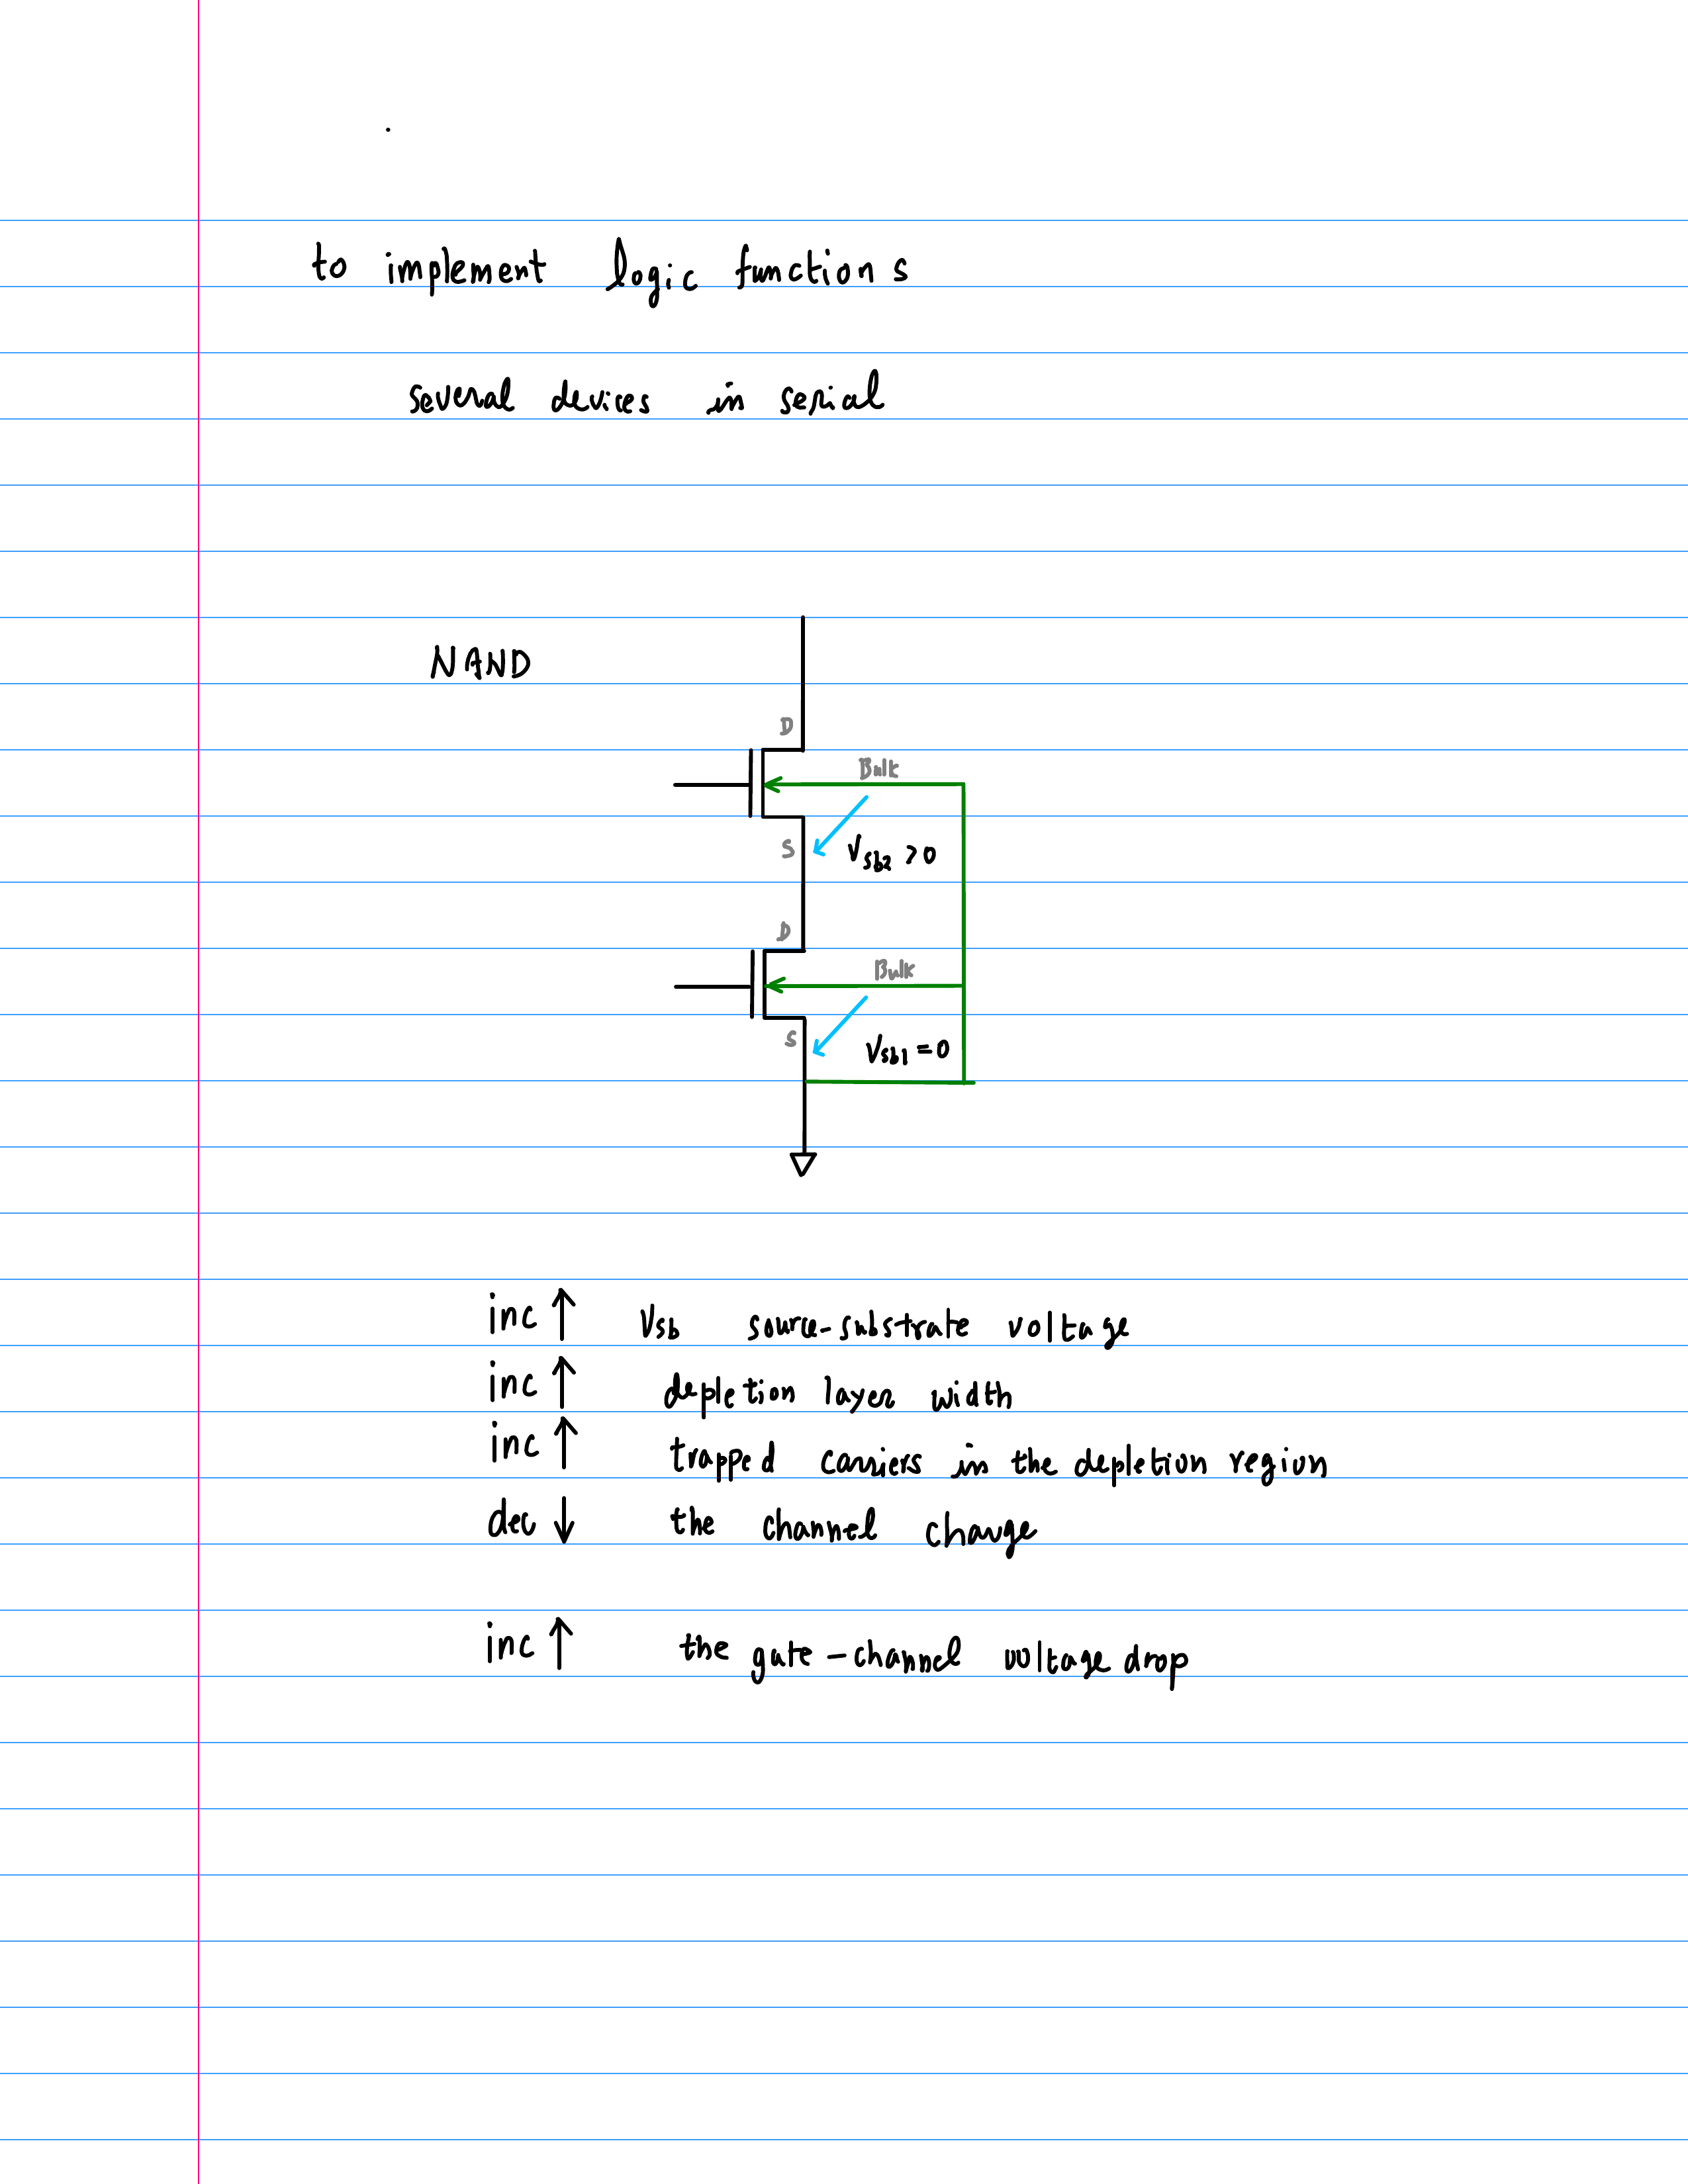 to implement logic functions
several devices in serial
NAND
D
Bulk
S
Vsb2 > 0
D
Bulk
S
Vsb1 = 0
inc ↑ Vsb source-substrate voltage
inc ↑ depletion layer width
inc ↑ trapped carriers in the depletion region
dec ↓ the channel charge
inc ↑ the gate-channel voltage drop